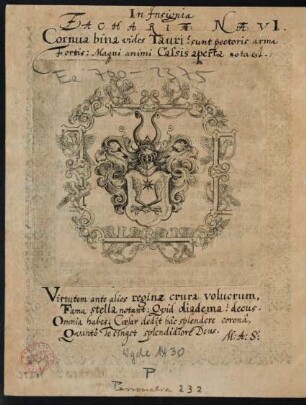 In Insignia
ZACHARIÆ NÆVI.
Cornua bina vides Tauri: sunt pectoris arma
Fortis: Magni animi Cassis aperta nota est.
Virtutem ante alios reginæ crura volucrum,
Fama stella notant: Quid diadema? decus.
Omnia habes: Cæsar dedit hac splendere corona,
Quanto Te cinget splendidiore Deus.
M. A. S.
P
232